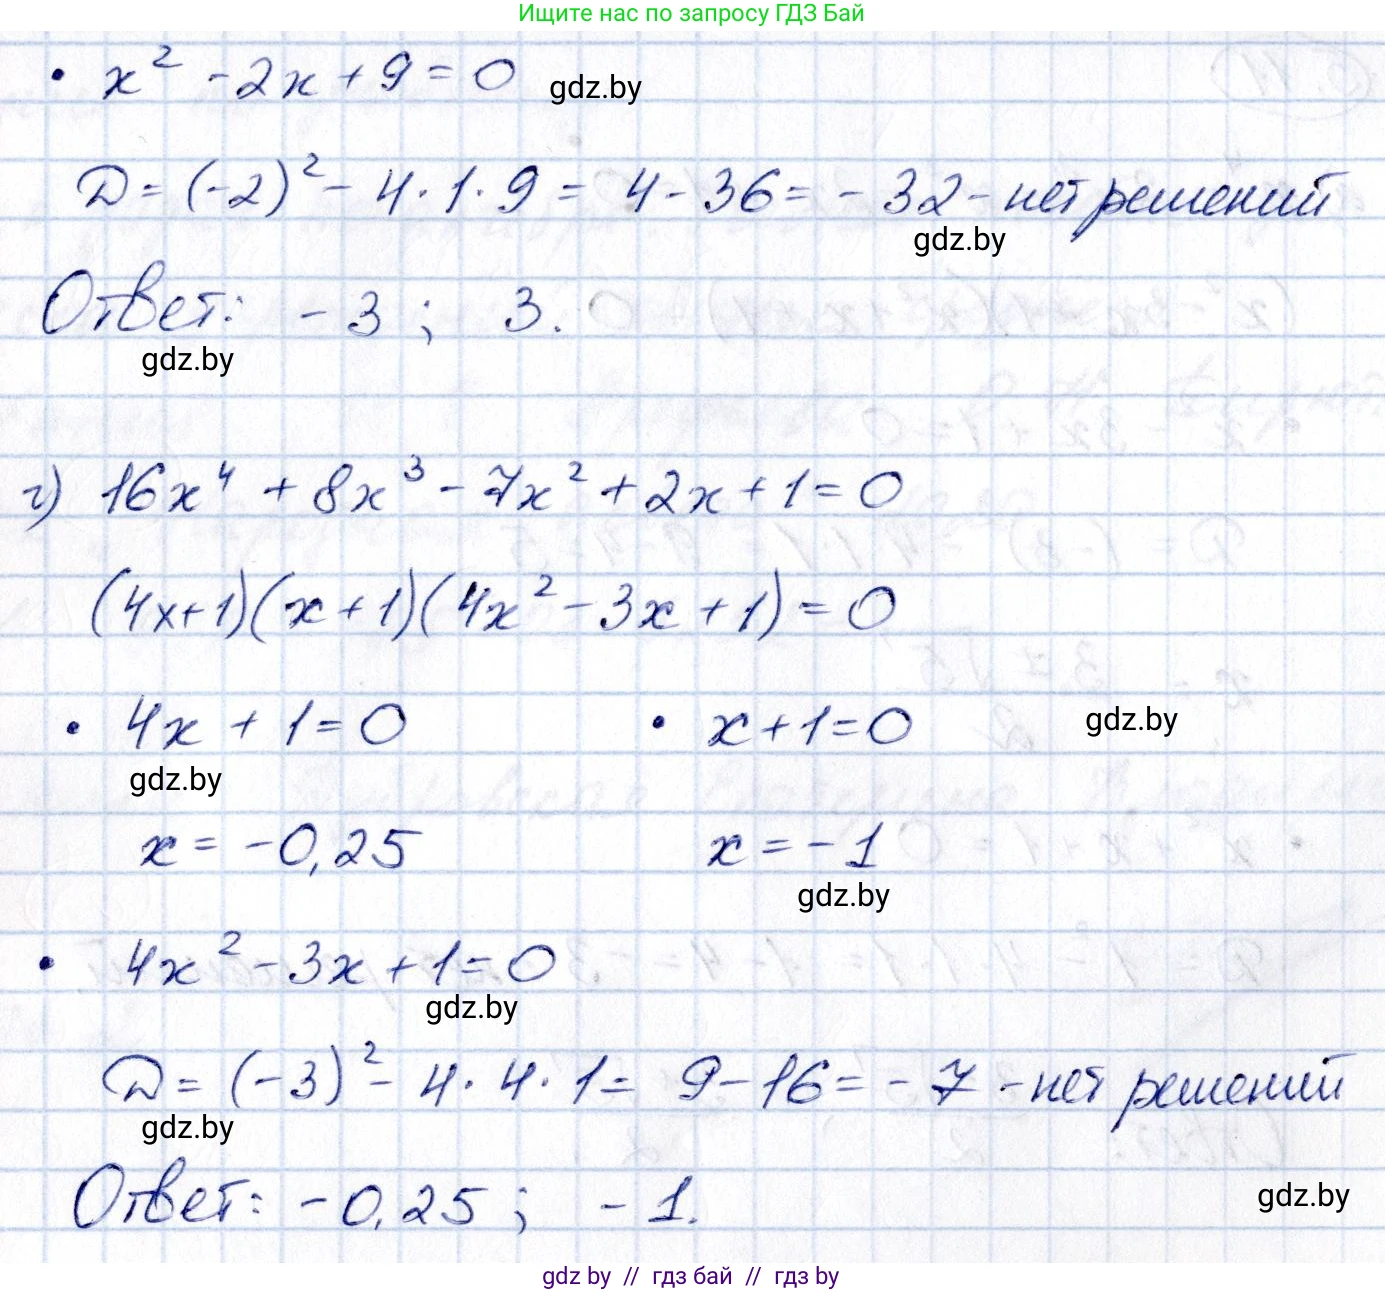 Ищите нас по запросу ГДЗ Бай
• x² - 2x + 9 = 0 gdz.by
D = (-2)² - 4 · 1 · 9 = 4 - 36 = - 32 - нет решений
gdz.by
Ответ: - 3 ; 3.
gdz.by
г) 16x⁴ + 8x³ - 7x² + 2x + 1 = 0
(4x+1)(x+1)(4x² - 3x + 1) = 0
• 4x + 1 = 0 • x + 1 = 0 gdz.by
gdz.by
x = -0,25 x = - 1
gdz.by
• 4x² - 3x + 1 = 0
gdz.by
D = (-3)² - 4 · 4 · 1 = 9 - 16 = - 7 - нет решений
gdz.by
Ответ: - 0,25 ; - 1.
gdz.by
gdz by // гдз бай // гдз by